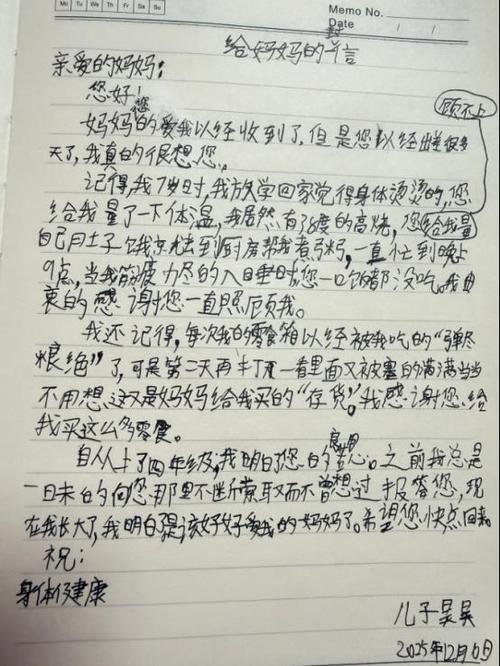 Mo Tu We Th Fr Sa Su
Memo No.
Date / /
给妈妈的一封信
亲爱的妈妈:
您好!
妈妈您的爱我以经收到了,但是您以经出差很多
天了,我真的很想您。
记得,我7岁时,我放学回家觉得身体烫烫的,您
给我量了一下体温,我居然有38度的高烧,您给我量
顾不上
自己肚子饿就先去到厨房帮我煮粥,一直忙到晚上
9点,当我筋疲力尽的入睡时您一口饭都没吃。我由
衷的感谢您一直照顾我。
我还记得,每次我的零食箱以经被我吃的“弹尽
粮绝”了,可是第二天再打开一看里面又被塞的满满当当
不用想这又是妈妈给我买的“存货”。我感谢您给
我买这么多零食。
自从上了四年级,我明白了您的良苦用心。之前我总是
一味的向您那里不断索取而不曾想过报答您,现
在我长大了,我明白是该好好爱我的妈妈了。希望您快点回来。
祝:
身体健康
儿子昊昊
2025年12月6日